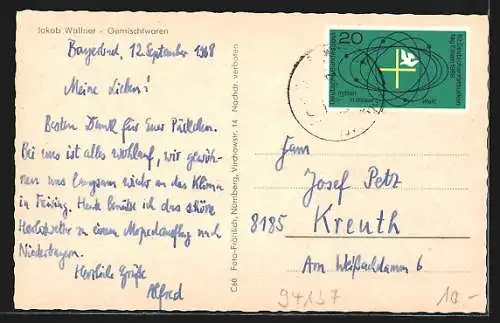 Jakob Wallner - Gemischtwaren
12. September 1968
Meine Lieben!
Besten Dank für Euer Päckchen.
Bei uns ist alles wohlauf, wir gewöh-
nen uns langsam wieder an das Klima
in Freising. Heute benütze ich das schöne
Herbstwetter zu einem Mopedausflug nach
Niederbayern.
Herzliche Grüße
Alfred
C60 Foto-Fröhlich, Nürnberg, Virchowstr. 14 Nachdr. verboten
20
Deutsche Bundespost
Welt
Fam
Josef Petz
8185 Kreuth
Am Weißachdamm 6
94137
10.-